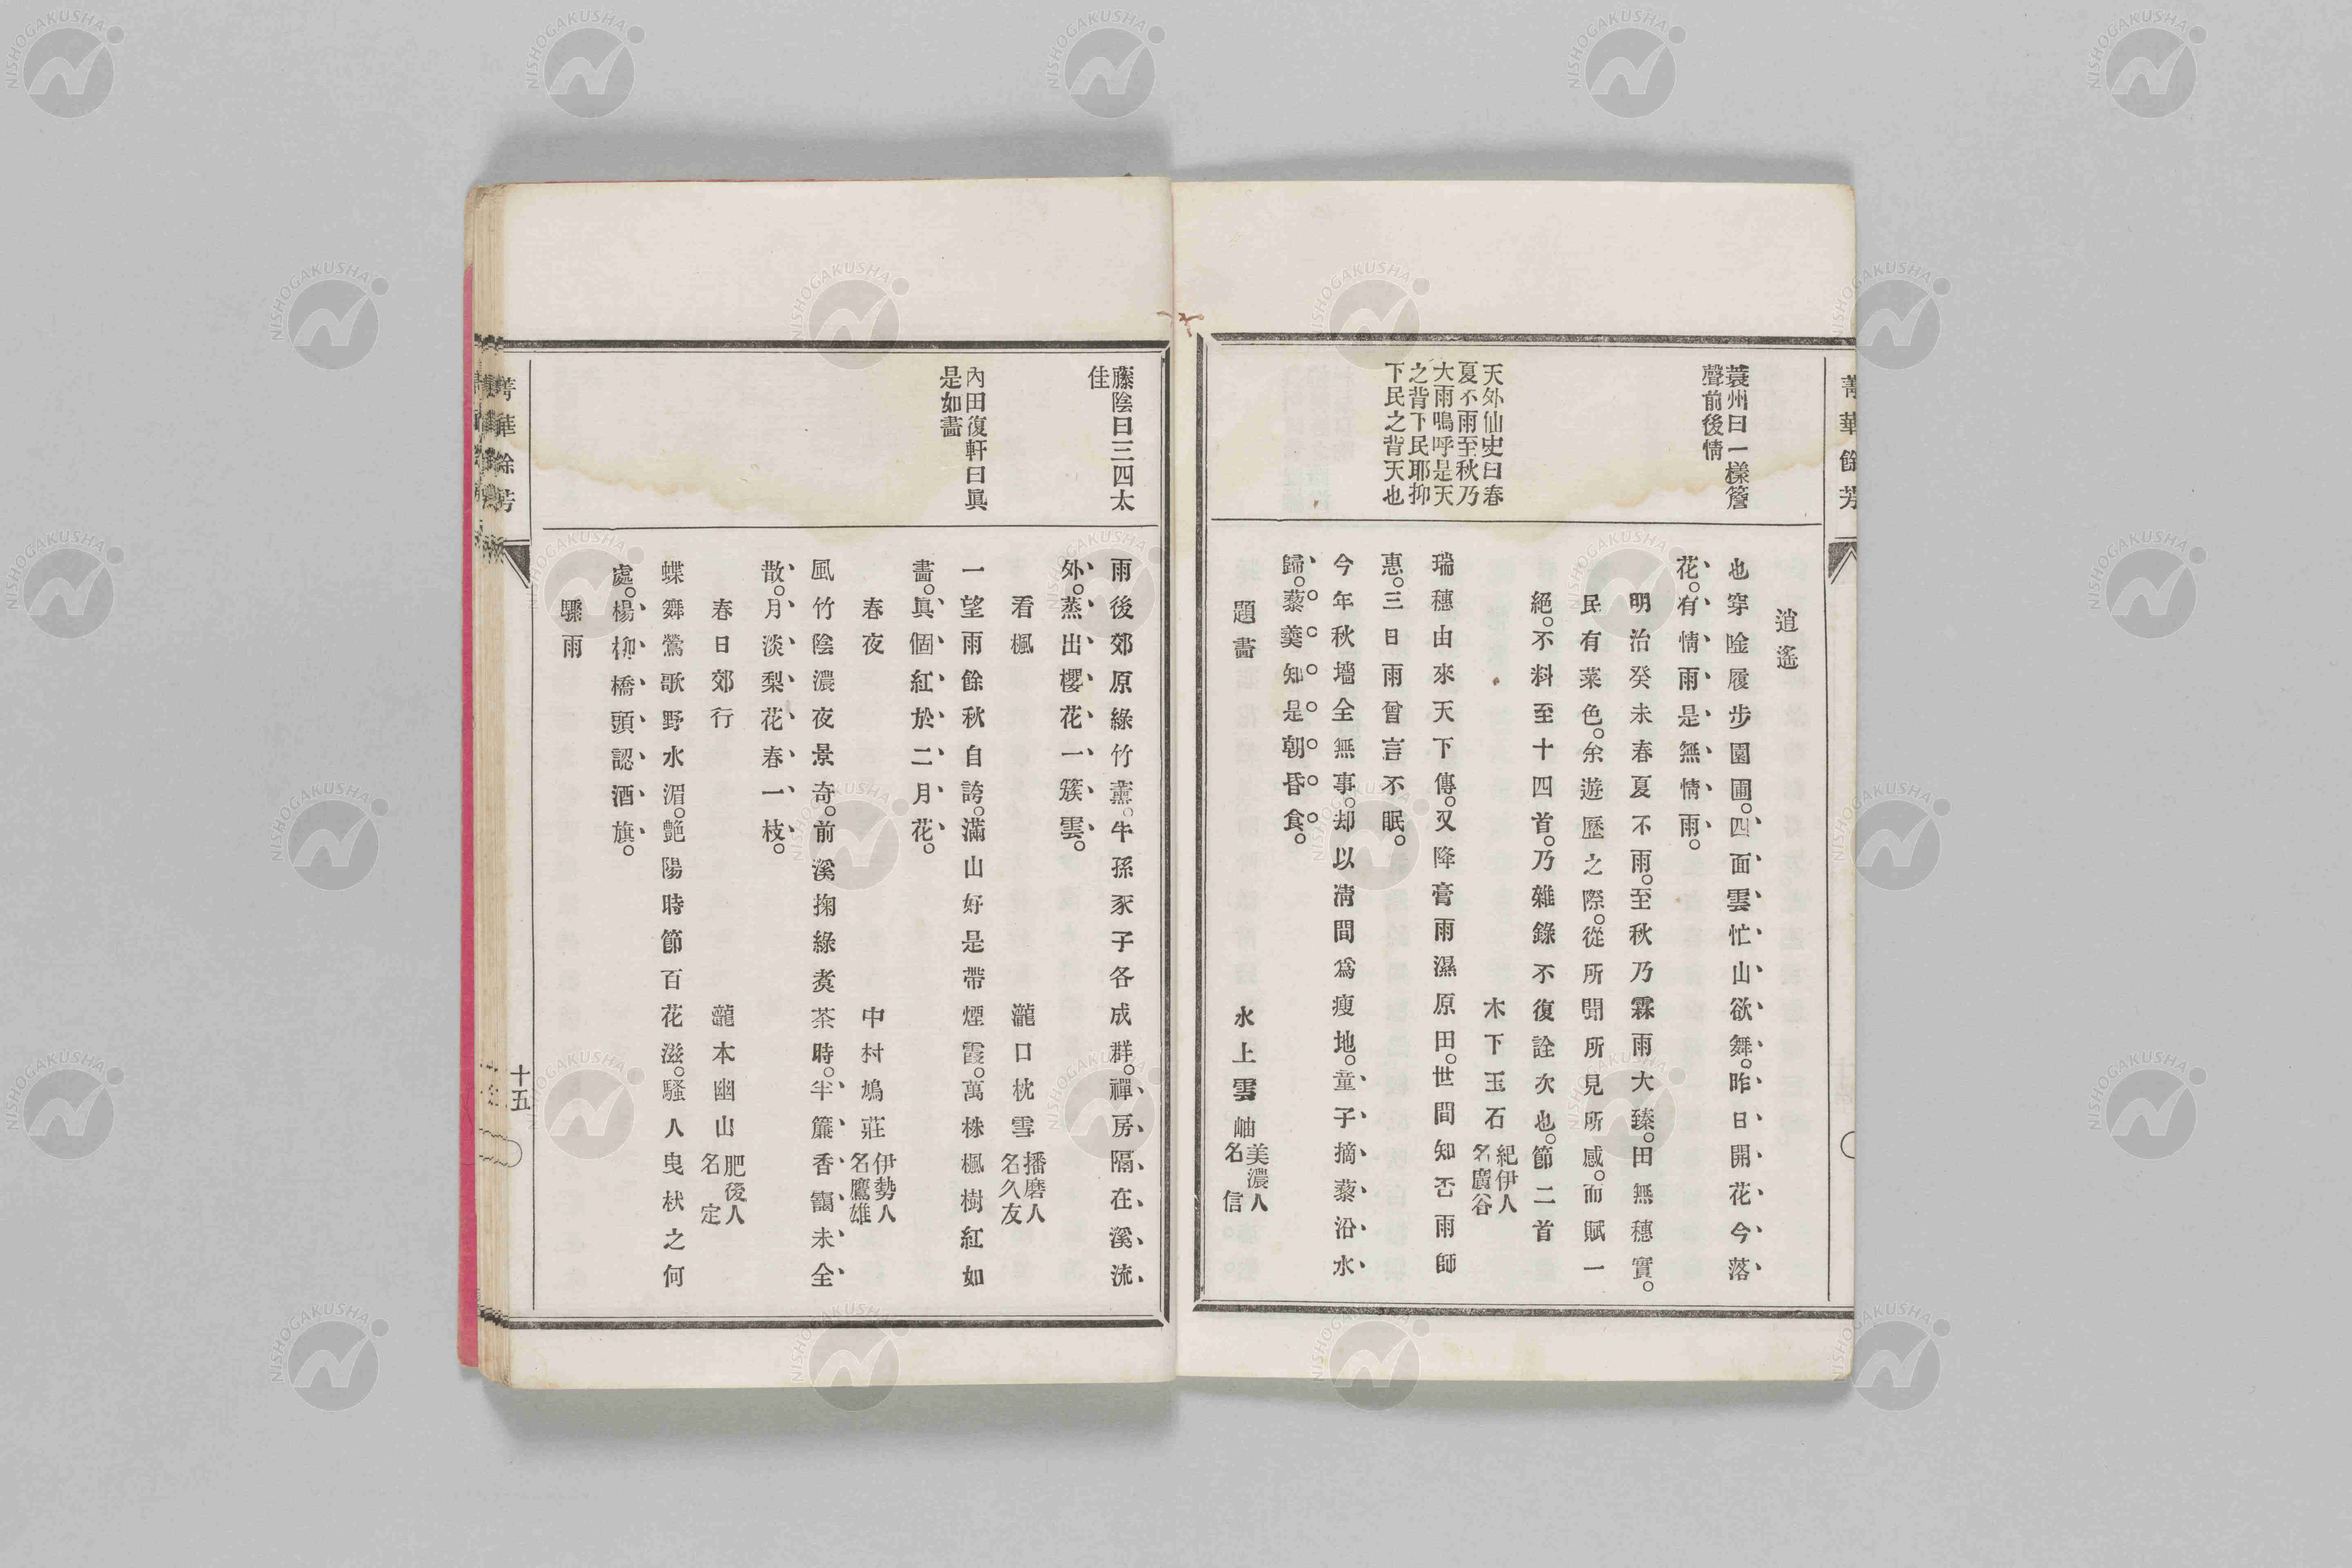 菁華餘芳
蓑州曰一樣簷
聲前後情
天外仙史曰春
夏不雨至秋乃
大雨嗚呼是天
之背下民耶抑
下民之背天也
逍遙
也穿 履步園圃。四面雲忙山欲舞。昨日開花今落
花。有情雨是無情雨。
明治癸未春夏不雨。至秋乃霖雨大臻。田無穗實。
民有菜色。余遊歷之際。從所聞所見所感。而賦一
絕。不料至十四首。乃雜錄不復詮次也。節二首
木下玉石 紀伊人 名廣谷
瑞穗由來天下傳。又降膏雨濕原田。世間知否雨師
惠。三日雨曾言不眠。
今年秋墻全無事。却以淸間爲瘦地。童子摘藜沿水
歸。藜羹知是朝昏食。
題畵
水上雲岫 美濃人 名信
藤陰曰三四太
佳
內田復軒曰眞
是如畵
雨後郊原綠竹薰。牛孫豕子各成群。禪房隔在溪流
外。蒸出櫻花一簇雲。
看楓
瀧口枕雪 播磨人 名久友
一望雨餘秋自誇。滿山好是帶煙霞。萬株楓樹紅如
畵。眞個紅於二月花。
春夜
中村鳩莊 伊勢人 名鷹雄
風竹陰濃夜景奇。前溪掬綠煑茶時。半簾香靄未全
散。月淡梨花春一枝。
春日郊行
瀧本幽山 肥後人 名定
蝶舞鶯歌野水湄。艷陽時節百花滋。騷人曳杖之何
處。楊柳橋頭認酒旗。
驟雨
菁華餘芳
十五
NISHOGAKUSHA